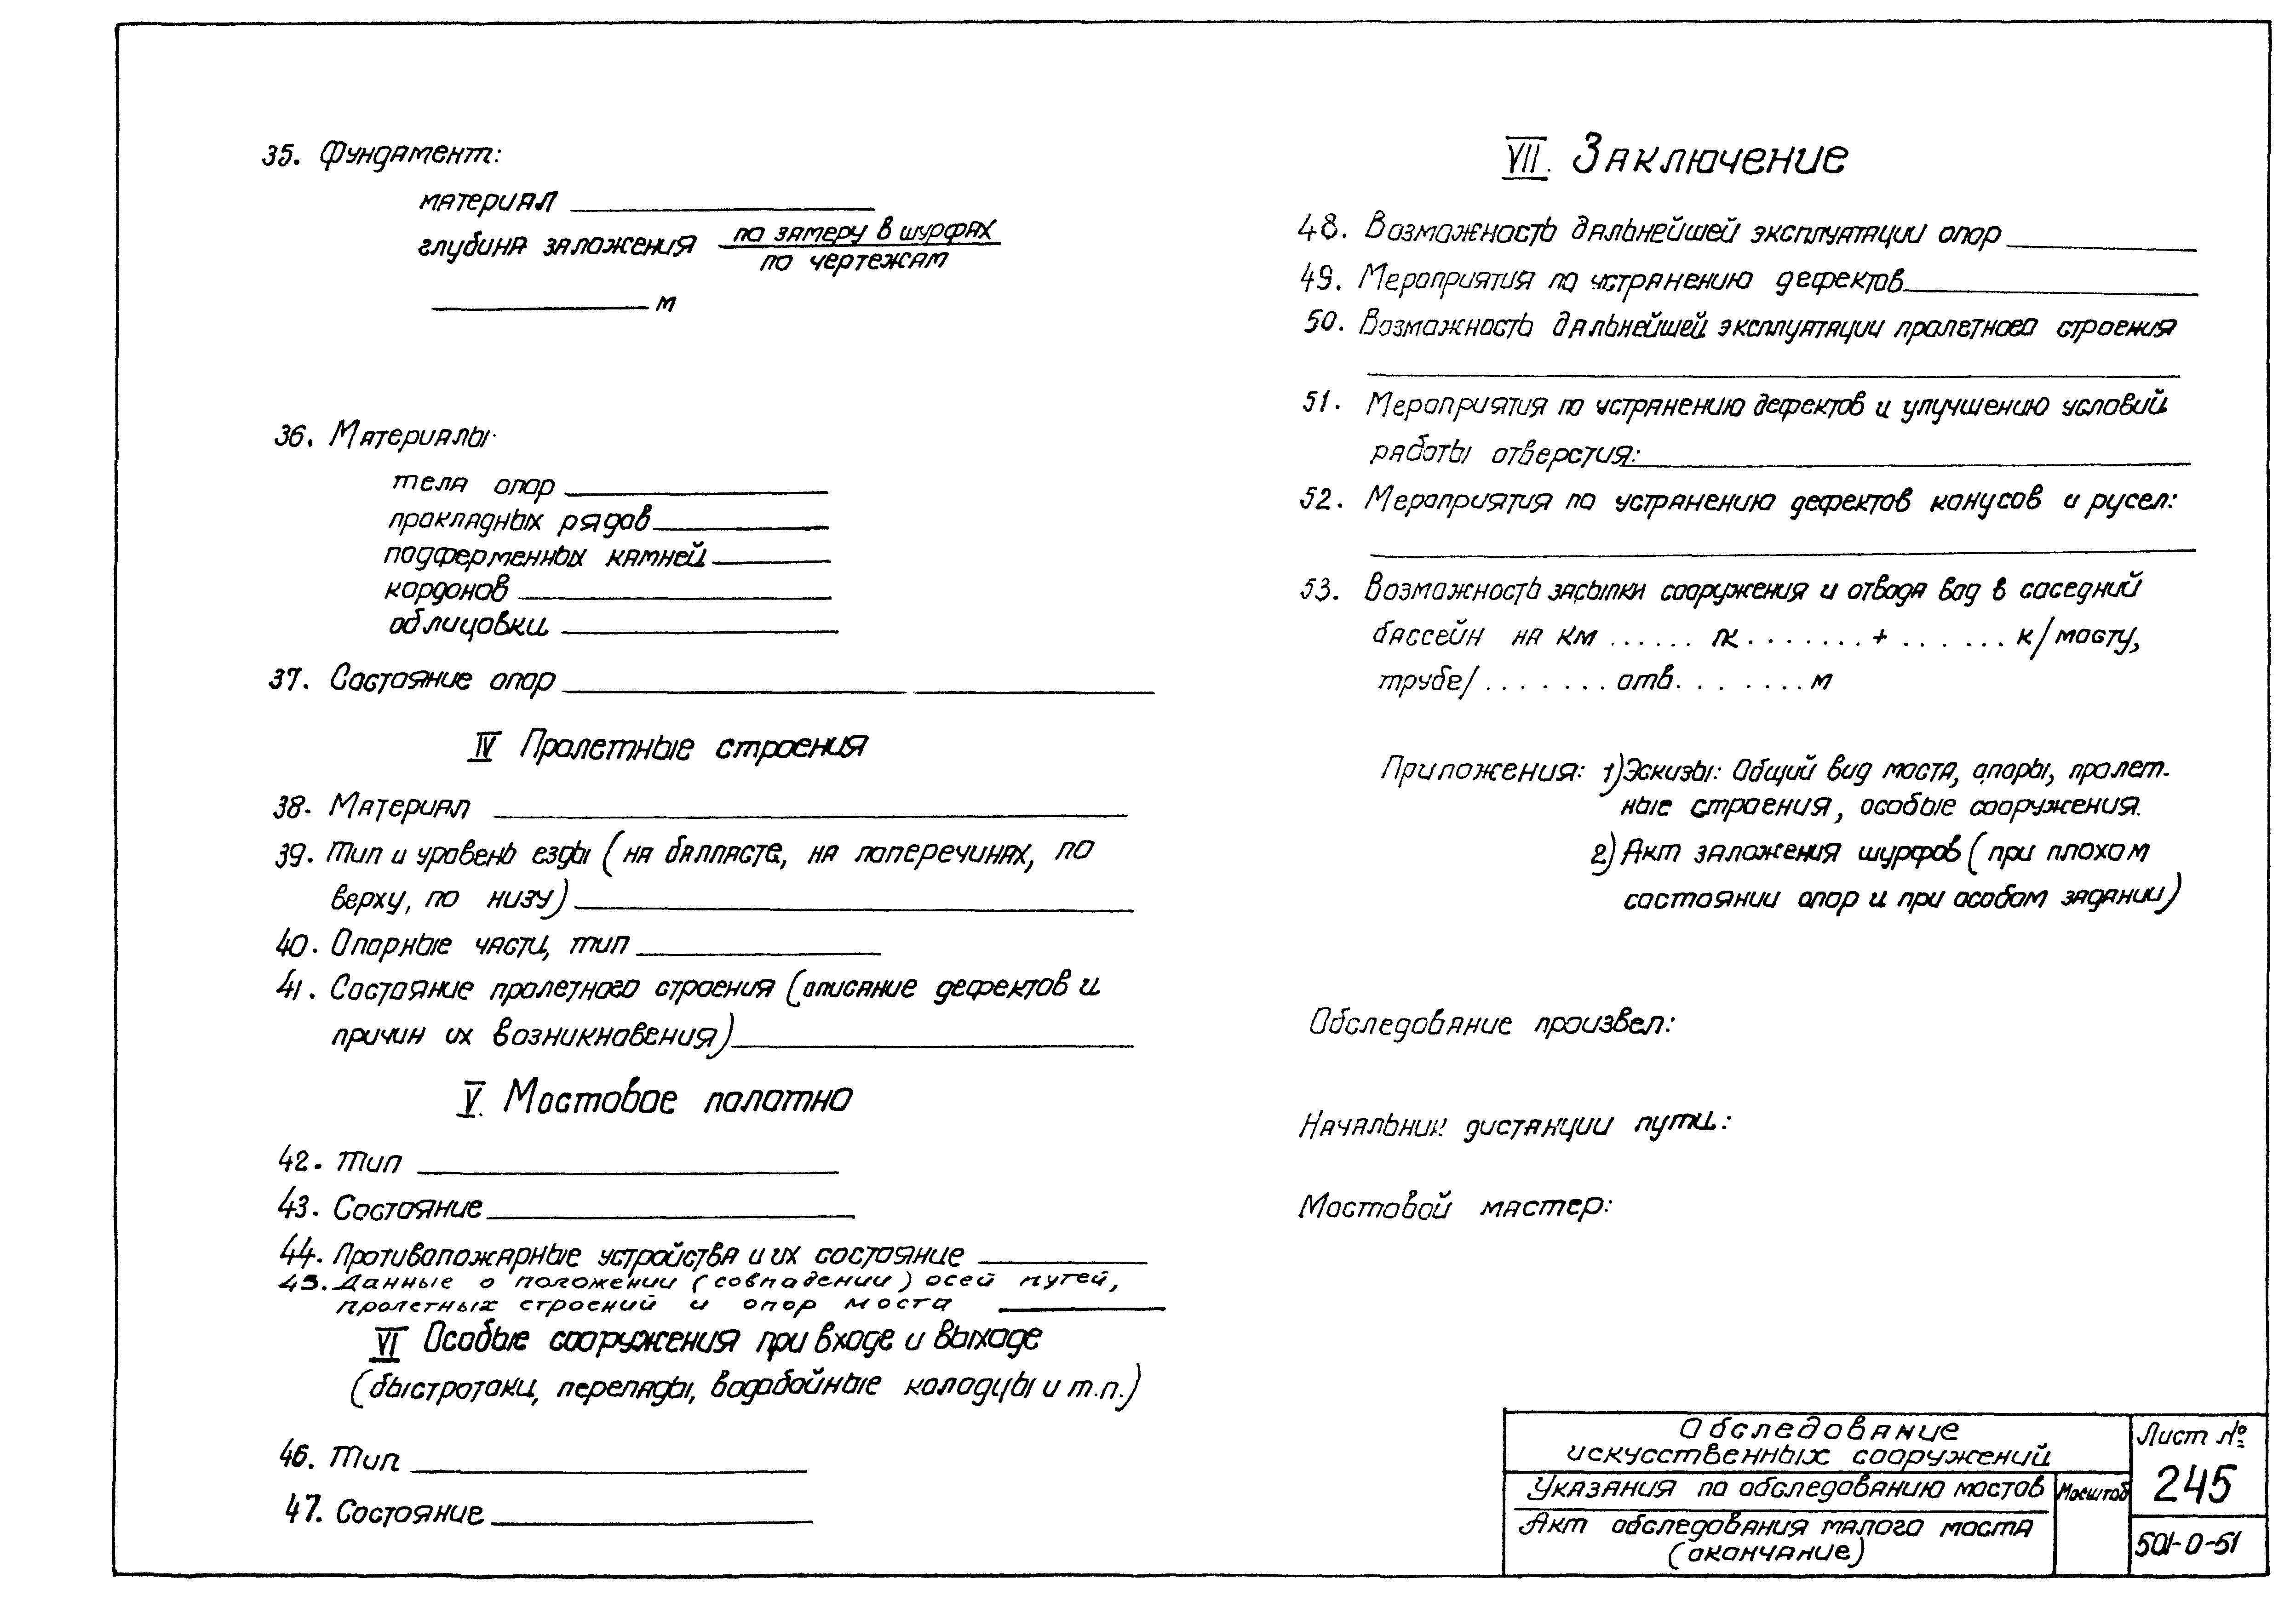 35. Фундамент:
материал
глубина заложения по замеру в шурфах
по чертежам
м
36. Материалы:
тела опор
прокладных рядов
подферменных камней
кордонов
облицовки
37. Состояние опор
IV Пролетные строения
38. Материал
39. Тип и уровень езды (на балласте, на поперечинах, по
верху, по низу)
40. Опорные части, тип
41. Состояние пролетного строения (описание дефектов и
причин их возникновения)
V. Мостовое полотно
42. Тип
43. Состояние
44. Противопожарные устройства и их состояние
45. Данные о положении (совпадении) осей путей,
пролетных строений и опор моста
VI Особые сооружения при входе и выходе
(быстротоки, перепады, водобойные колодцы и т.п.)
46. Тип
47. Состояние
VII. Заключение
48. Возможность дальнейшей эксплуатации опор
49. Мероприятия по устранению дефектов
50. Возможность дальнейшей эксплуатации пролетного строения
51. Мероприятия по устранению дефектов и улучшению условий
работы отверстия:
52. Мероприятия по устранению дефектов конусов и русел:
53. Возможность засыпки сооружения и отвода вод в соседний
бассейн на км ...... пк ....... + ....... к/мосту,
трубе/ ....... отв. ....... м
Приложения: 1) Эскизы: Общий вид моста, опоры, пролет-
ные строения, особые сооружения.
2) Акт заложения шурфов (при плохом
состоянии опор и при особом задании)
Обследование произвел:
Начальник дистанции пути:
Мостовой мастер:
Обследование
искусственных сооружений
Указания по обследованию мостов
Масштаб
Акт обследования малого моста
(окончание)
Лист №
245
501-0-51